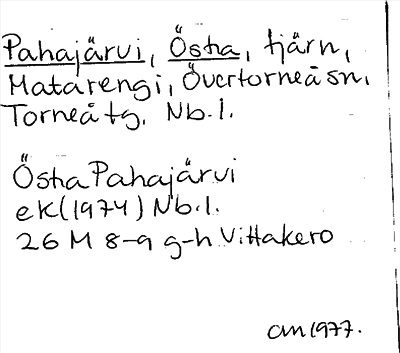 Pahajärvi, Östra, tjärn,
Matarengi, Övertorneå sn,
Torneå tg, Nb. l.
Östra Pahajärvi
ek (1974) Nb. l.
26 M 8-9 g-h Vittakero
am 1977.